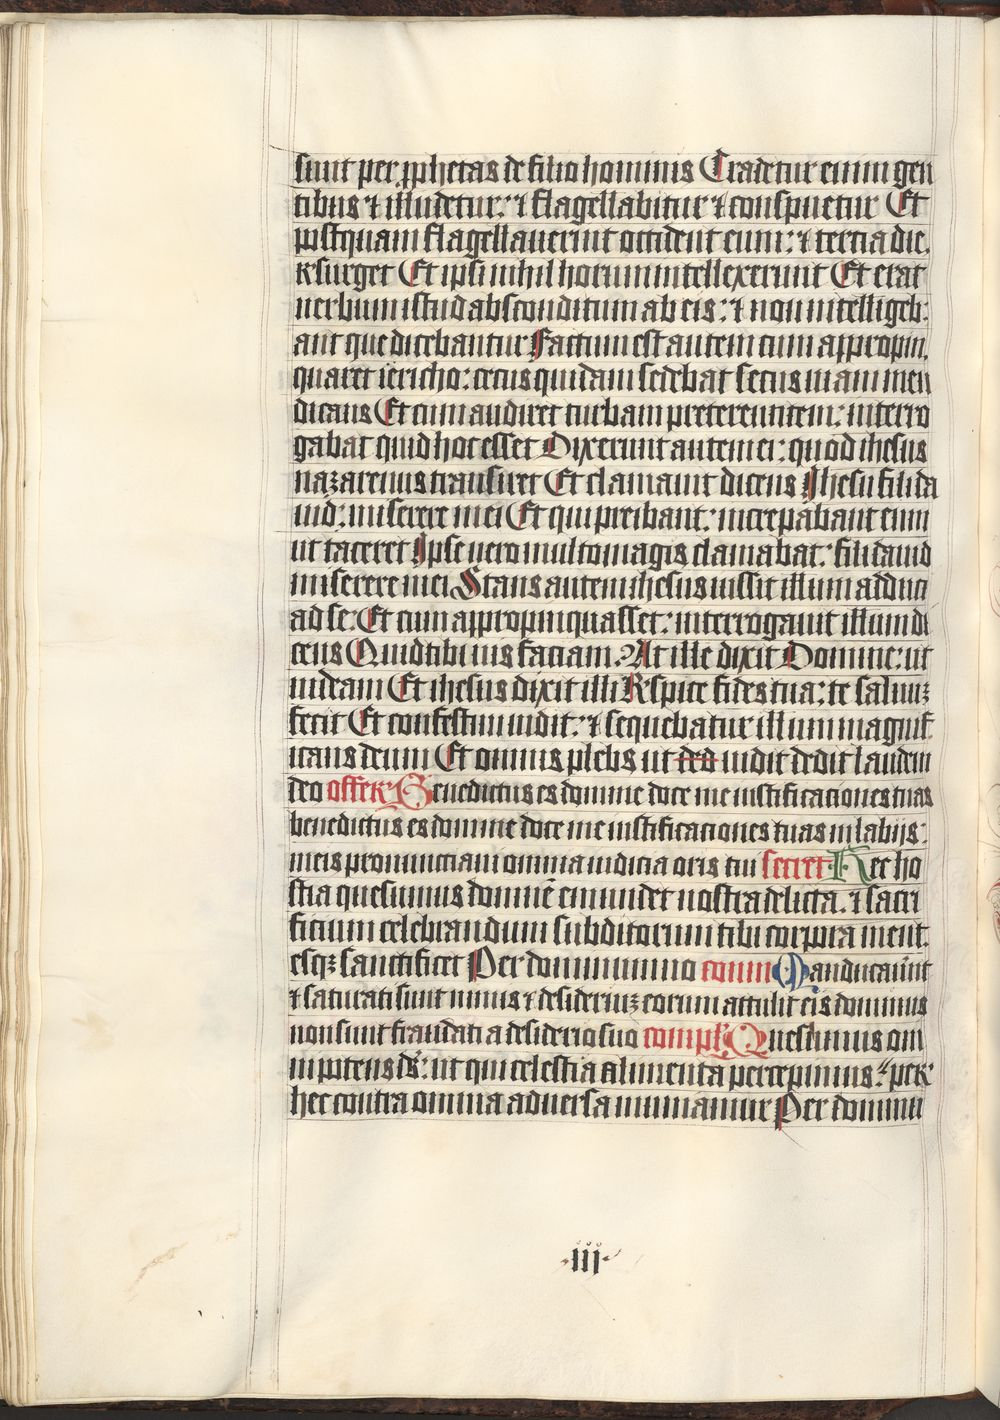 sunt per prophetas de filio hominis Tradetur enim gen
tibus ⁊ illudetur: ⁊ flagellabitur ⁊ conspuetur Et
postquam flagellauerint occident eum: ⁊ tertia die.
resurget Et ipsi nihil horum intellexerunt Et erat
uerbum istud absconditum ab eis: ⁊ non intelligeb:
ant que dicebantur Factum est autem cum appropin.
quaret iericho: cecus quidam sedebat secus uiam men
dicans Et cum audiret turbam pretereuntem: interro
gabat quid hoc esset Dixerunt autem ei: quod ihesus
nazarenus transiret Et clamauit dicens Ihesu fili da
uid: miserere mei Et qui preibant: increpabant eum
ut taceret Ipse uero multo magis clamabat: fili dauid
miserere mei Stans autem ihesus iussit illum adduci
ad se: Et cum appropinquasset: interrogauit illum di
cens Quid tibi uis faciam. At ille dixit Domine: ut
uideam Et ihesus dixit illi Respice fides tua: te saluuʒ
fecit Et confestim uidit: ⁊ sequebatur illum magnif
icans deum Et omnis plebs ut deo uidit dedit laudem
deo offer Benedictus es domine doce me iustificationes tuas
benedictus es domine doce me iustificationes tuas in labijs:
meis pronunciaui omnia iudicia oris tui secret Hec ho
stia quesumus domine emundet nostra delicta. ⁊ sacri
ficium celebrandum subditorum tibi corpora ment
esqʒ sanctificet Per dominum no comm Manducauerunt
⁊ saturati sunt nimis ⁊ desideriuʒ eorum attulit eis dominus
non sunt fraudati a desiderio suo compl Quesumus om
nipotens ds: ut qui celestia alimenta percepimus: per
hec contra omnia aduersa muniamur Per dominu
·iii·